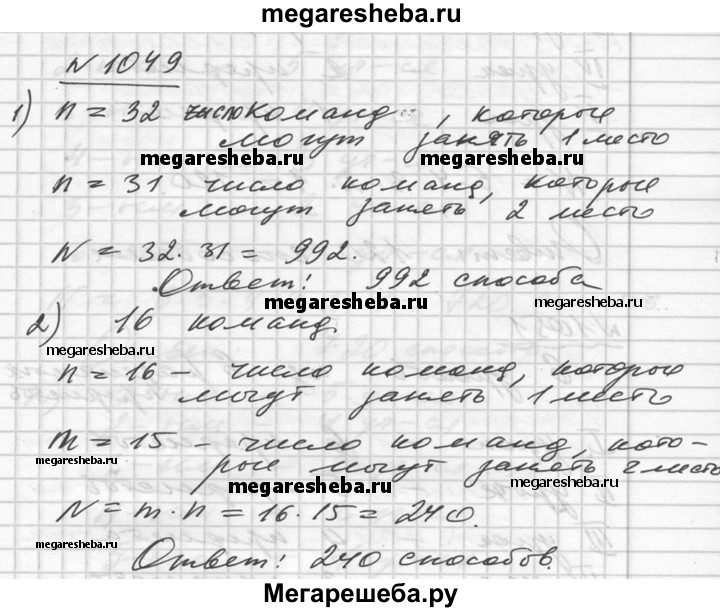 megaresheba.ru
N 1049
1) n = 32 число команд, которые
могут занять 1 место
megaresheba.ru megaresheba.ru
n = 31 число команд, которые
могут занять 2 место
N = 32 · 31 = 992.
Ответ: 992 способа
megaresheba.ru megaresheba.ru
2) 16 команд.
megaresheba.ru
n = 16 – число команд, которые
megaresheba.ru megaresheba.ru
могут занять 1 место
m = 15 – число команд, кото-
megaresheba.ru
рые могут занять 2 место
megaresheba.ru megaresheba.ru
N = m · n = 16 · 15 = 240.
megaresheba.ru
Ответ: 240 способов.
Мегарешеба.ру